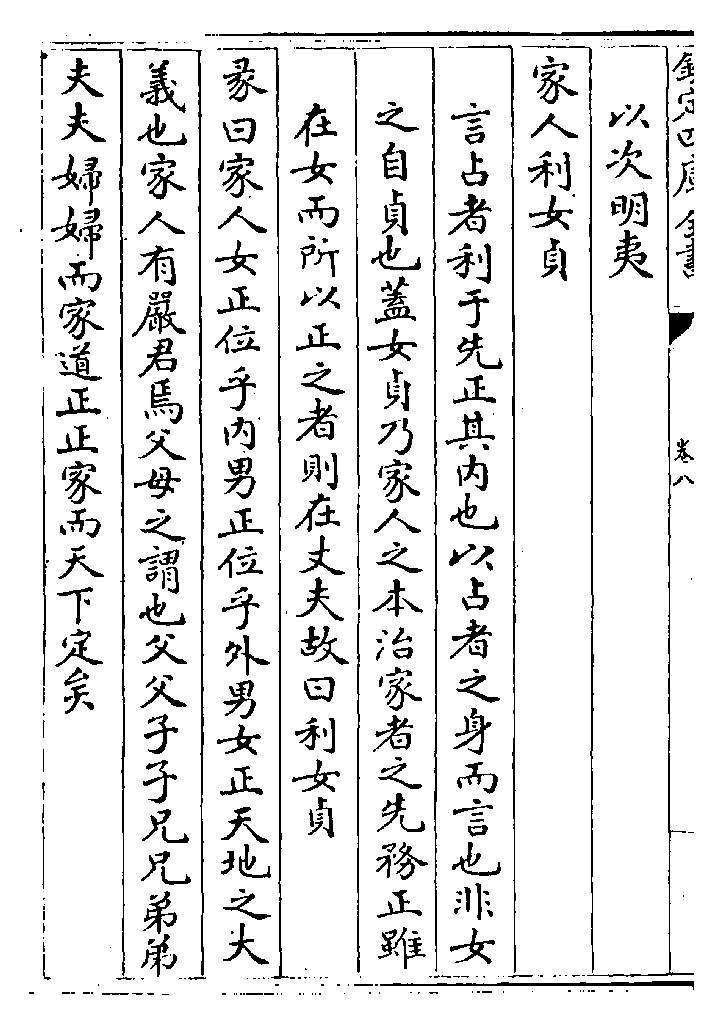 欽定四庫全書
卷八
以次明夷
家人利女貞
言占者利于先正其内也以占者之身而言也非女
之自貞也蓋女貞乃家人之本治家者之先務正雖
在女而所以正之者則在丈夫故曰利女貞
彖曰家人女正位乎内男正位乎外男女正天地之大
義也家人有嚴君焉父母之謂也父父子子兄兄弟弟
夫夫婦婦而家道正正家而天下定矣